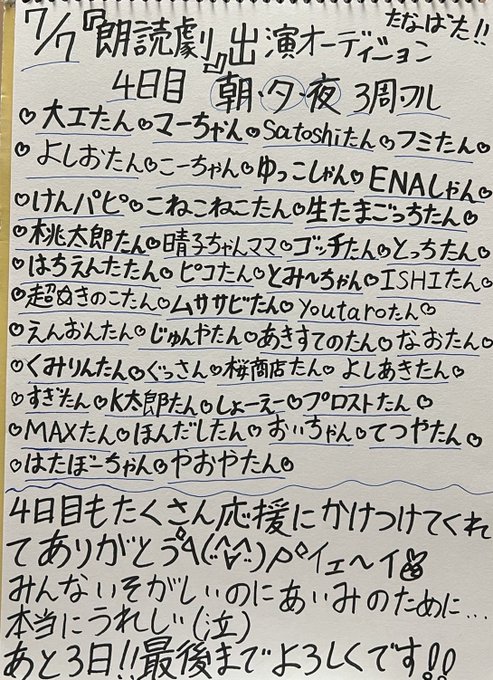 7/7『朗読劇』出演オーディション たなばた!!
4日目 朝・夕・夜 3周フル
♡大工たん♡マーちゃん♡Satoshiたん♡フミたん♡
♡よしおたん♡こーちゃん♡ゆっこしゃん♡ENAしゃん
♡けんパピ♡こねこねこたん♡生たまごっちたん♡
♡桃太郎たん♡晴子ちゃんママ♡ゴッチたん♡とっちたん♡
♡はちえんたたん♡ピコたん♡とみ〜ちゃん♡ISHIたん♡
♡超ぬきのこたん♡ムササビたん♡Youtaroたん♡
♡えんおんたん♡じゅんやたん♡あきすてのたん♡なおたん♡
♡くみりんたん♡ぐっさん♡桜商店たん♡よしあきたん♡
♡すぎたん♡K太郎たん♡しょーえー♡プロストたん♡
♡MAXたん♡ほんだしたん♡おぃちゃん♡てつやたん♡
♡はたぼーちゃん♡やおやたん♡
4日目もたくさん応援にかけつけてくれ
てありがとう イェ〜イ✌
みんないそがしいのにあいみのために…
本当にうれしい(泣)
あと3日!!最後までよろしくです!!